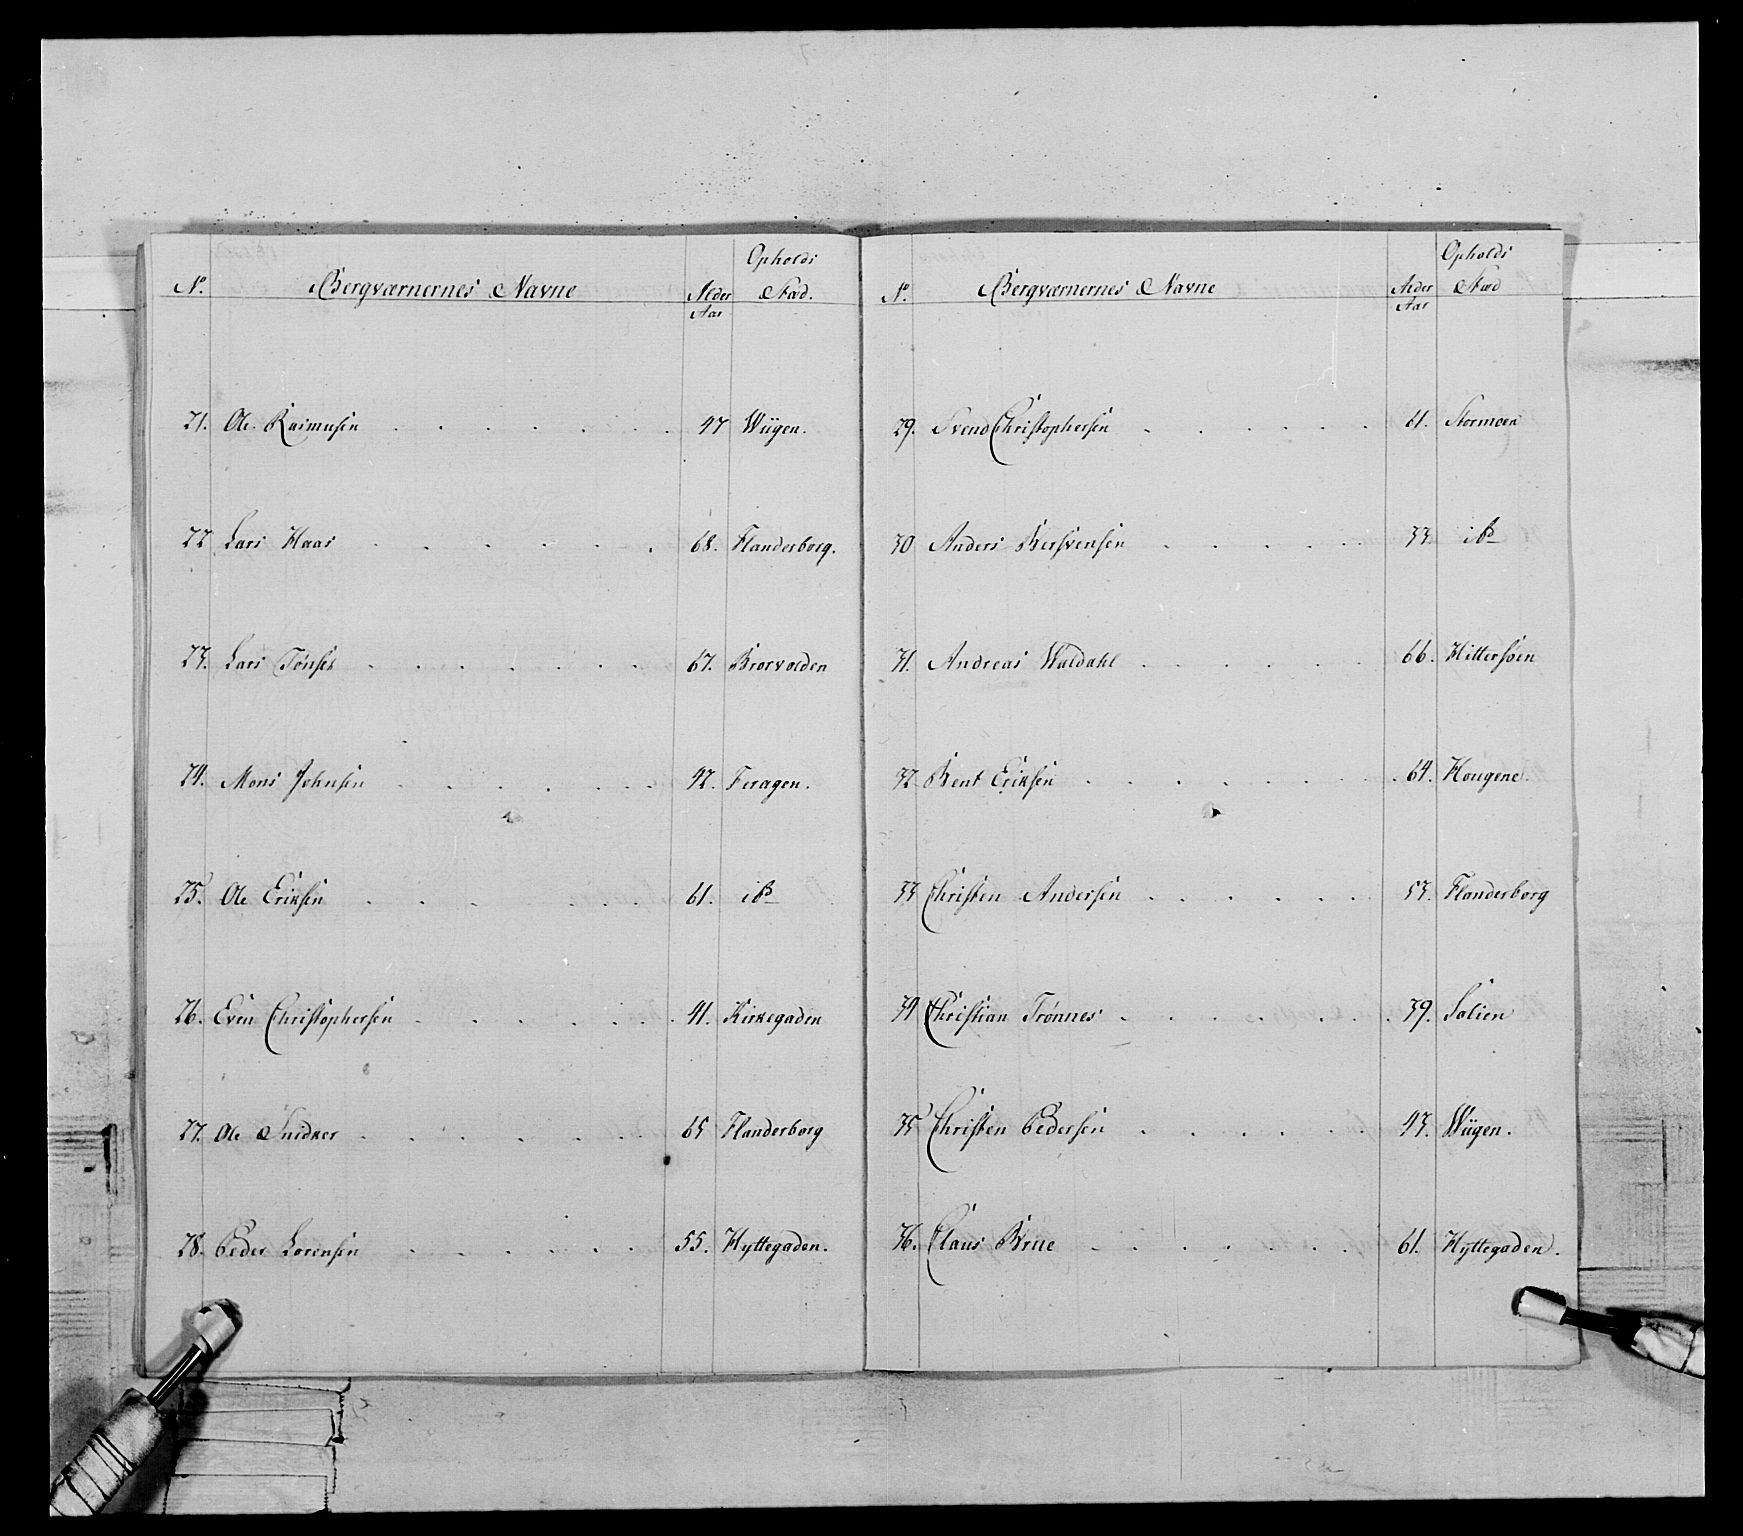 No. Bergværnernes Navne Alder Aar Opholds Stæd.
21. Ole Rasmusen 47 Wiigen.
22 Lars Haas 68. Flanderborg.
23. Lars Tønset 67. Brorvolden
24. Mons Johnsen 42. Feragen.
25. Ole Eriksen 61. ibd
26. Even Christophersen 41. Kirkegaden
27. Ole Snidker 65 Flanderborg
28. Peder Lorensen 55. Hyttegaden.
No. Bergværnernes Navne Alder Aar Opholds Stæd
29. Svend Christophersen 61. Stormoen
30 Anders Bersvensen 33. ibd
31. Andreas Waldahl 66. Hittersøen
32 Bent Eriksen 64. Hougene.
33 Christen Andersen 53. Flanderborg
34 Christian Trønnes 39. Solien
35 Christen Pedersen 43. Wiigen.
36. Claus Brue 61. Hyttegaden.